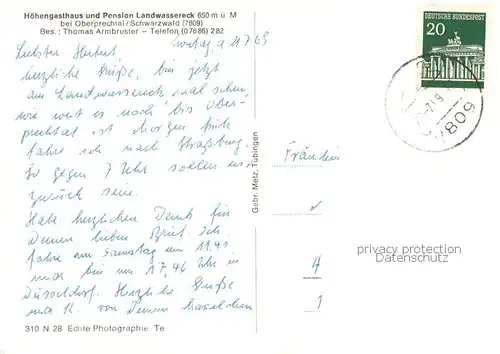 Höhengasthaus und Pension Landwassereck 650 m ü M
bei Oberprechtal / Schwarzwald (7809)
Bes.: Thomas Armbruster – Telefon (07686) 282
Liebster Herbert,
herzliche Grüße, bin jetzt
am Landwassereck mal sehen,
wie weit es noch bis Ober-
prechtal ist Morgen früh
fahre ich nach Straßburg.
So gegen 7 Uhr sollen wir
zurück sein.
Habe herzlichen Dank für
Deinen lieben Brief ich
fahre am Samstag um 11.41
und bin um 17,46 Uhr in
Düsseldorf. Herzliche Grüße
und von Deinem
310 N 28 Echte Photographie Te
Gebr. Metz, Tübingen
DEUTSCHE BUNDESPOST
20
7809
Fräulein
privacy protection
Datenschutz
4
1